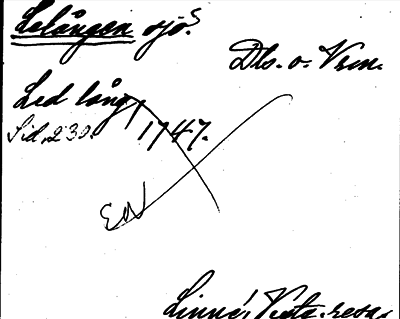 Lelången sjö.
Dls. o. Vrm.
Led lång,
Sid. 230. 1747.
Linné, Västg. resa